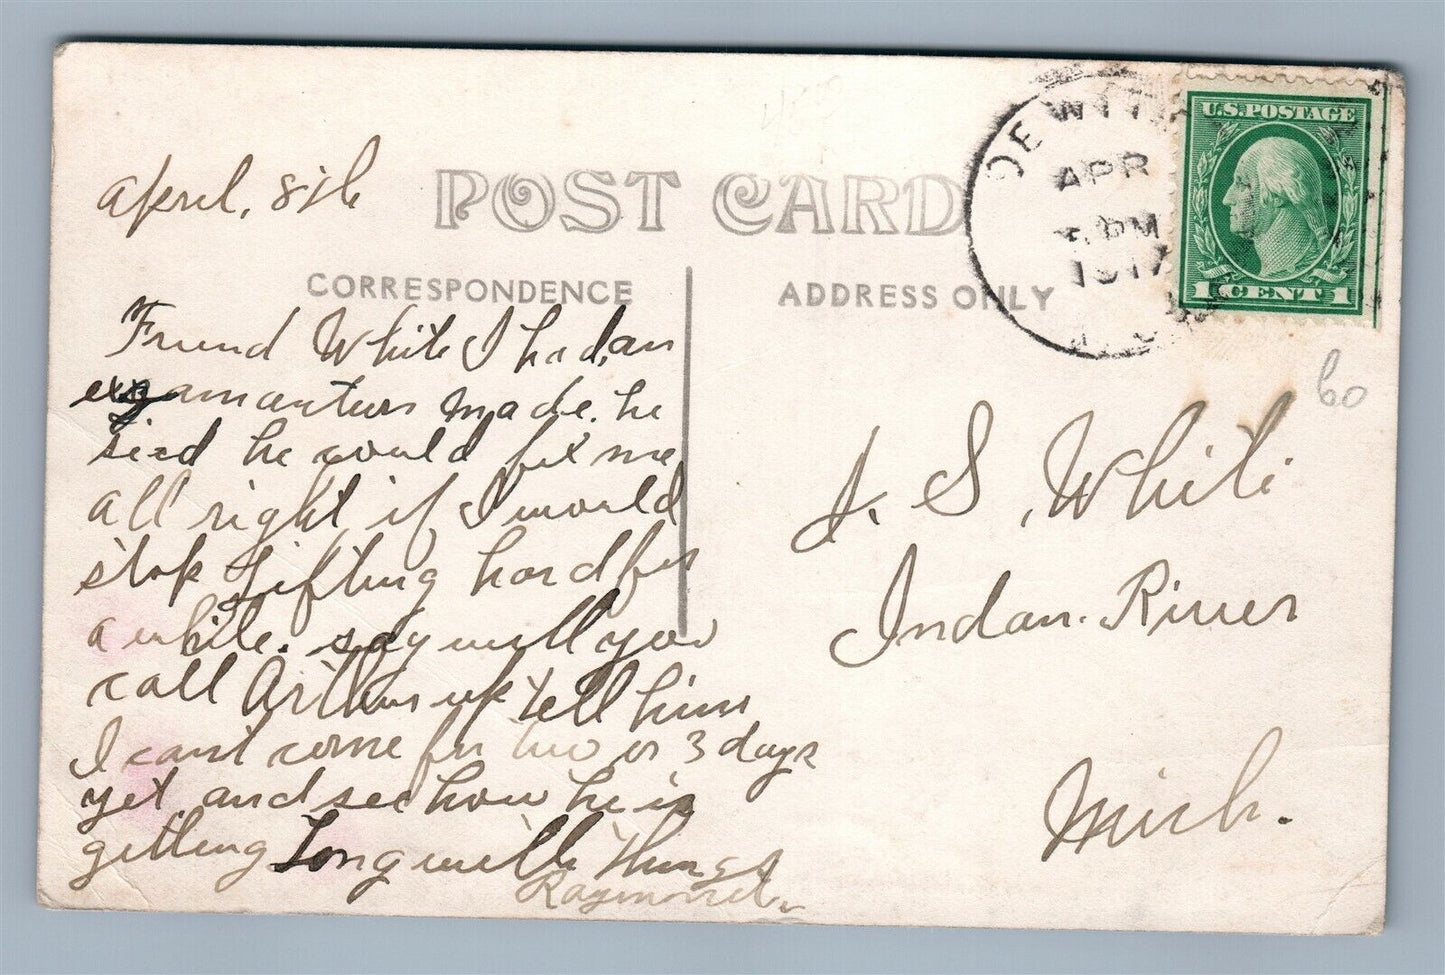 April, 8th
POST CARD
CORRESPONDENCE
ADDRESS ONLY
DEWITT
APR
PM
1917
U.S. POSTAGE
1 CENT 1
60
Friend White I had, an
examanturn made. he
sied he could fix me
all right if I would
stop Lifting hard for
a while. say will you
call Arthur up tell him
I cant come for two or 3 days
yet and see how he is
getting Long with things
Raymond.
J. S. White
Indan. River
Mich.